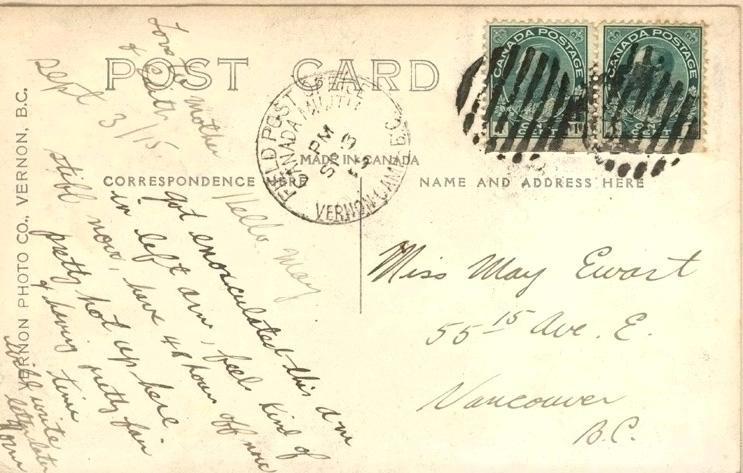 POST CARD
MADE IN CANADA
CORRESPONDENCE HERE
NAME AND ADDRESS HERE
VERNON PHOTO CO., VERNON, B.C.
CANADA POSTAGE
CANADA POSTAGE
FIELD POST
CANADA MILITIA
PM
VERNON CAMP B.C.
Sept 3/15
Hello May
got enoculated this am
in left arm, feels kind of
stiff now, have 48 hours off now
pretty hot up here
having pretty fair
time
will write
letter later
Love to Mother
&
Miss May Ewart
55 15 Ave. E.
Vancouver
B.C.